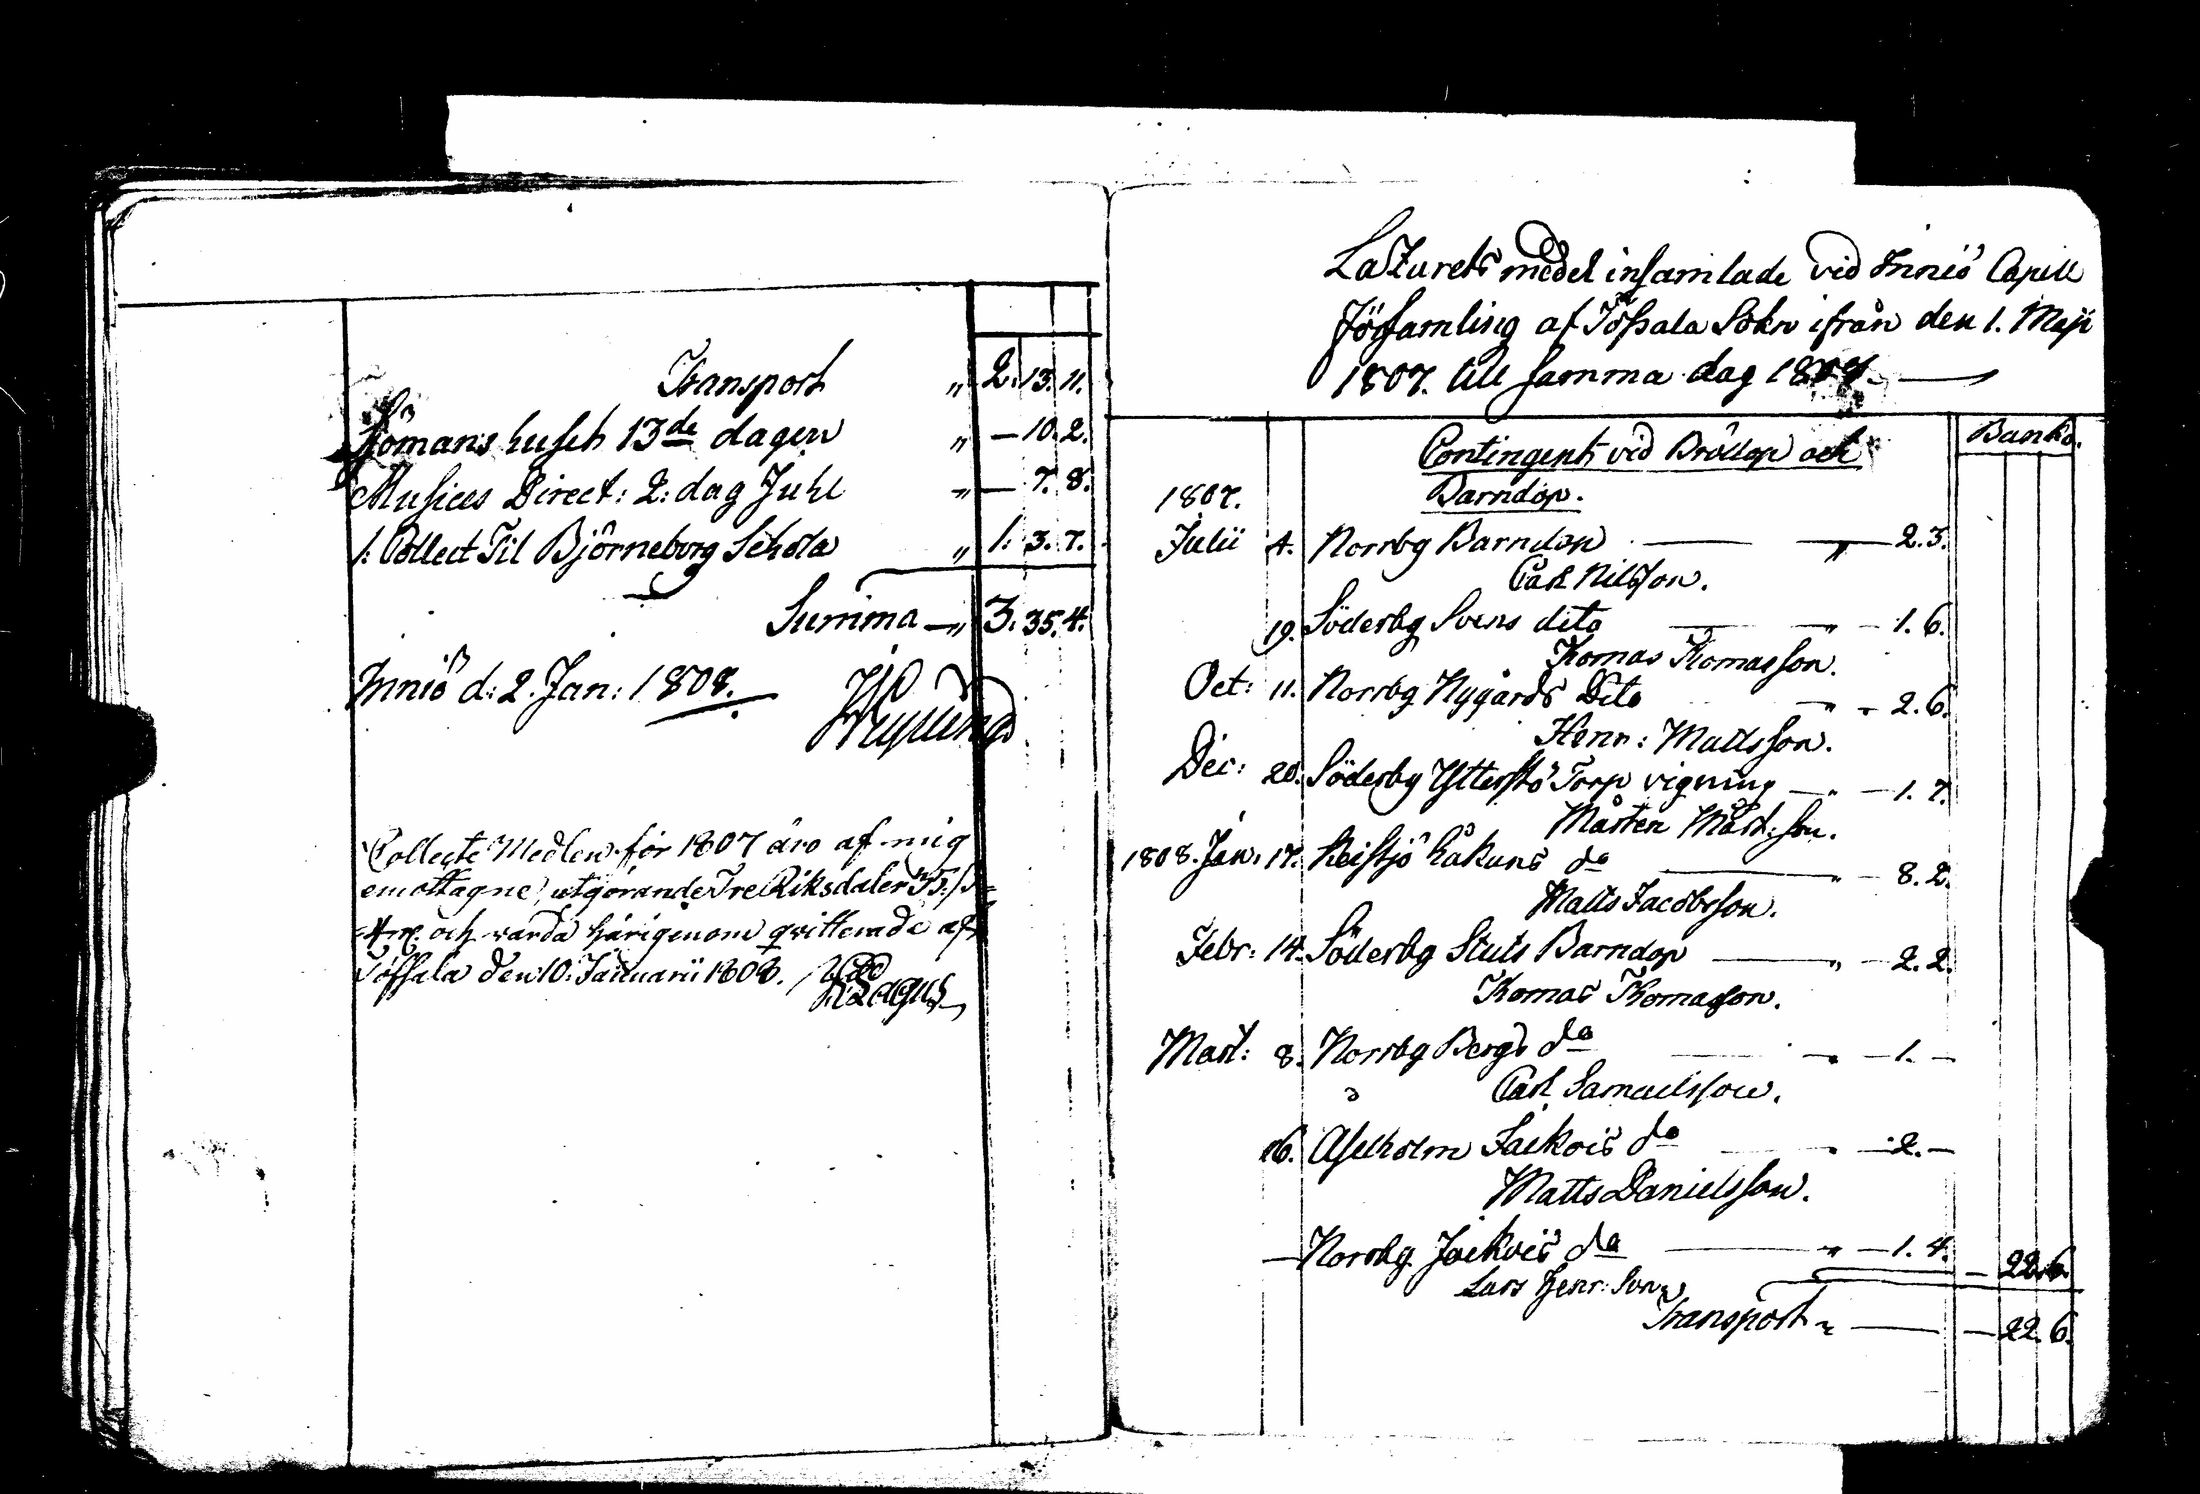 Transport " 2. 13. 11.
Sömans huseh 13de dagen " — 10. 2.
Musices Direct: 2: dag Juhl " — 7. 8.
1: Collect Til Björneborg Schola " 1. 3. 7.
Summa — " 3. 35. 4.
Iniö d: 2. Jan: 1808.
Collecte Medlen för 1807 äro af mig
emottagne, utgörande Tre Riksdaler 35 s
4 och warda härigenom qvitterade af
Töfsala den 10. Januarii 1808.
Lazarets medel insamlade vid Iniö Capell
församling af Töfsala Sokn ifrån den 1. Maji
1807. till samma dag 1808. —
Contingent vid Bröllop och Banko.
Barndop.
1807.
Julii 4. Norrby Barndop — " — 2. 3.
Carl Nilsson.
19. Söderby Svens dito — " — 1. 6.
Thomas Thomasson.
Oct: 11. Norrby Nygårds Dito " - 2. 6.
Henr: Mattsson.
Dec: 20. Söderby Torp vigning — " — 1. 7.
Mårten Mårt:son.
1808. Jan: 17. Keistjö Håkans do — " — 8. 2.
Matts Jacobsson.
Febr: 14. Söderby Stuts Barndop — " — 2. 2.
Thomas Thomasson.
Mart: 8. Norrby Bergs do — " — 1. —
Carl Samuelsson.
16. Aselholm Jackois do — " — 2. —
Matts Danielsson.
— Norrby Jackois do — " — 1. 4. — 22. 6.
Lars Henr: Son
Transport " — — 22. 6.